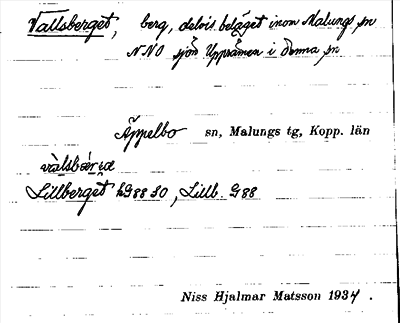 Vallsberget, berg, delvis beläget inom Malungs sn
NNO sjön Uppsämen i denna sn
Äppelbo sn, Malungs tg, Kopp. län
Lillberget hG88 30, Lillb. G88
Niss Hjalmar Matsson 1934.